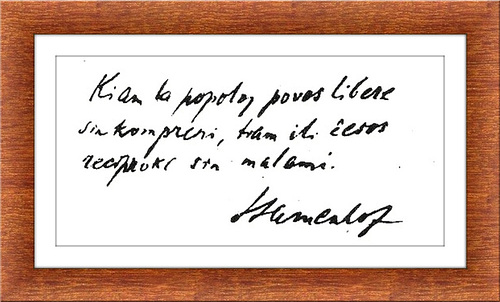 Kiam la popoloj povos libere
sin kompreni, tiam ili ĉesos
reciproke sin malami.
LZamenhof